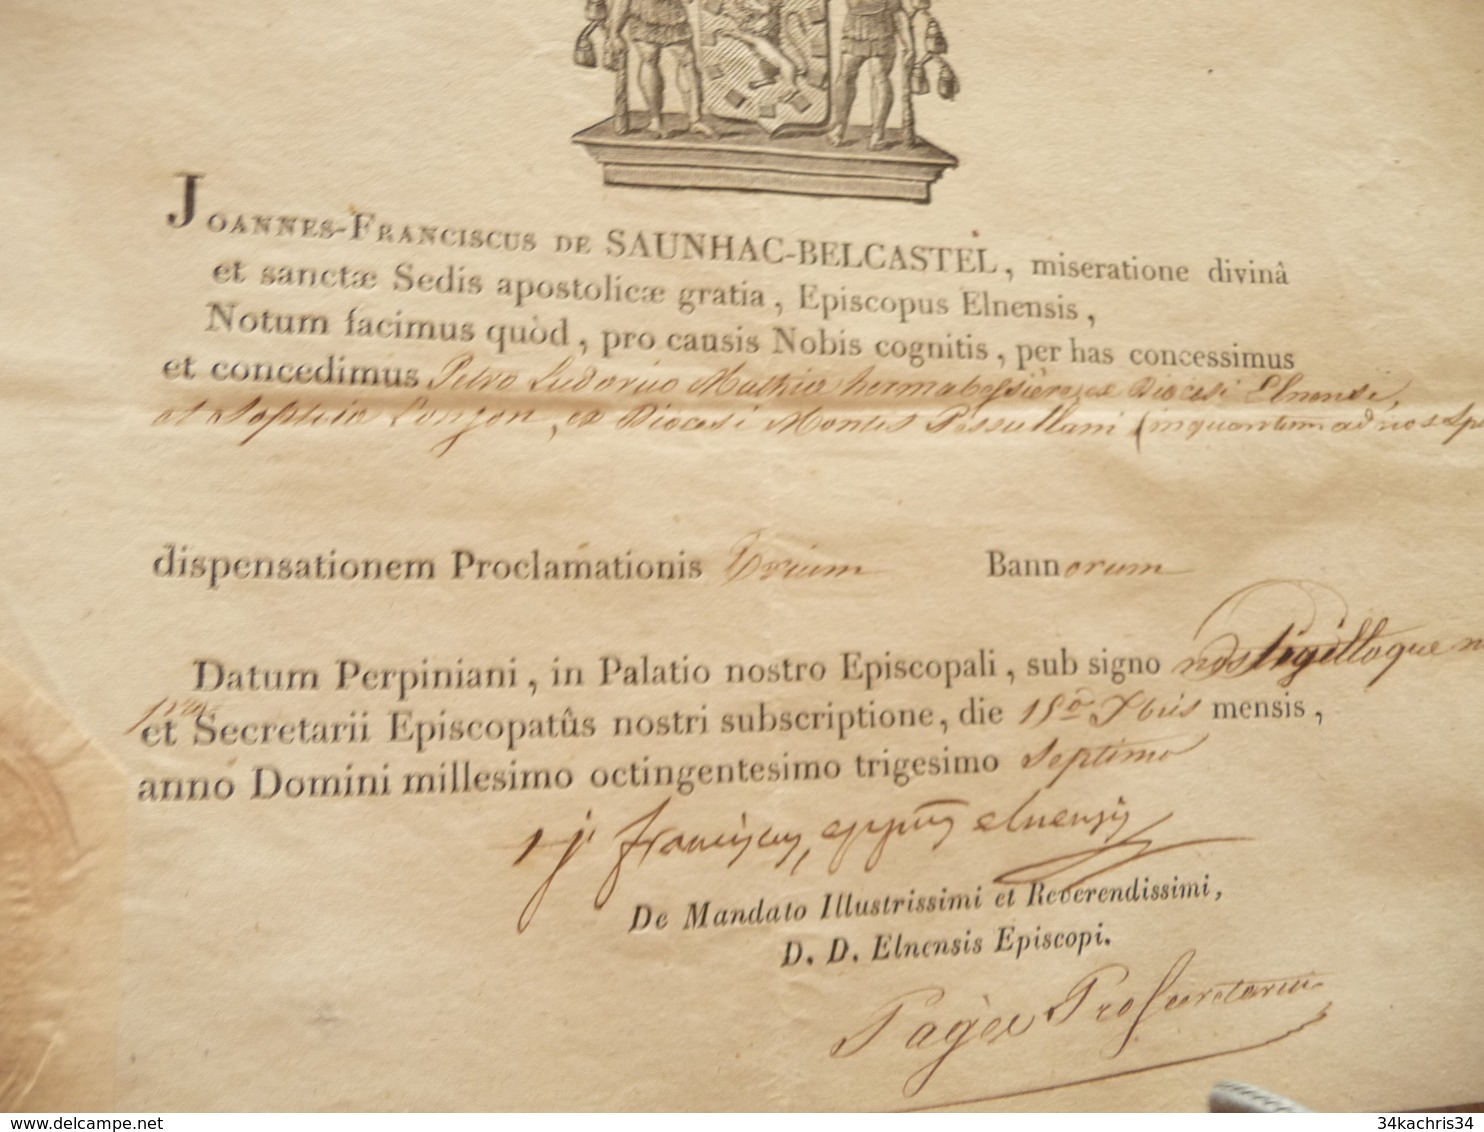 JOANNES-FRANCISCUS DE SAUNHAC-BELCASTEL, miseratione divinâ
et sanctæ Sedis apostolicæ gratia, Episcopus Elnensis,
Notum facimus quòd, pro causis Nobis cognitis, per has concessimus
et concedimus Petro Ludovico Mathia ex Diocesi Elnensi,
et Sophia Lonjon, ex Diocesi Montis Pessullani (inquantum ad nos spe
dispensationem Proclamationis trium Bannorum
Datum Perpiniani, in Palatio nostro Episcopali, sub signo sigilloque
et Secretarii Episcopatûs nostri subscriptione, die 15â 7bris mensis,
anno Domini millesimo octingentesimo trigesimo septimo
† j. franciscus, elnensis
De Mandato Illustrissimi et Reverendissimi,
D. D. Elnensis Episcopi.
Pagès Pro Secretarius
delcampe.net
34kachris34